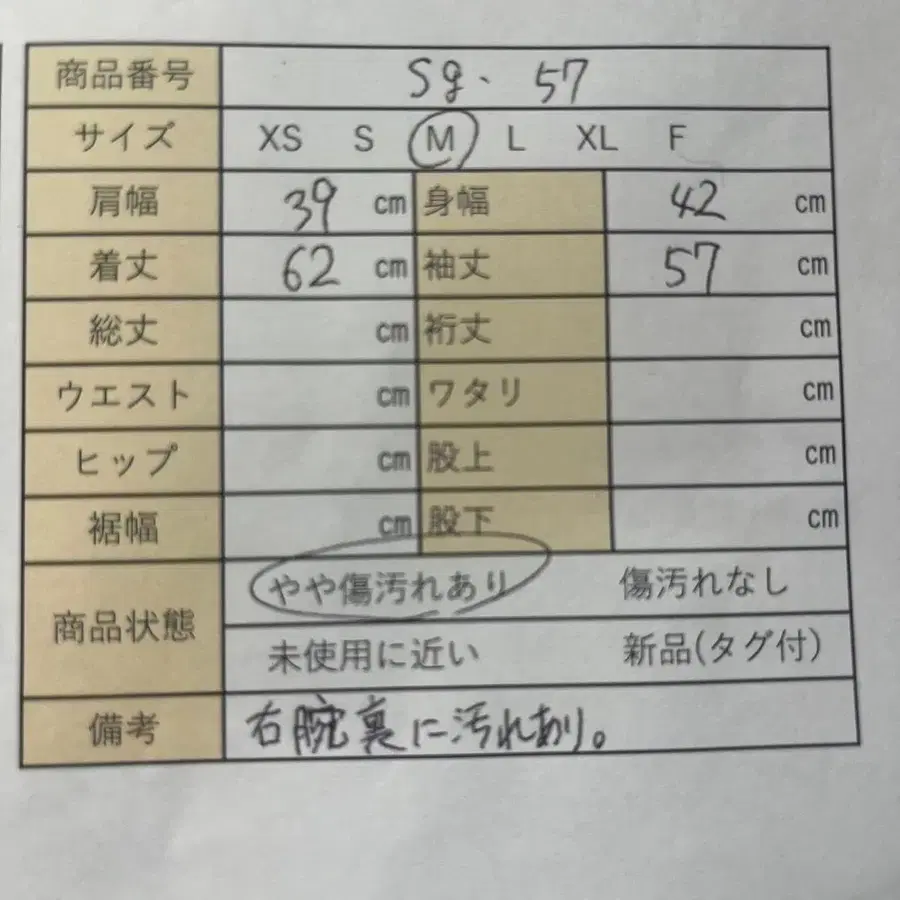 商品番号 Sg. 57
サイズ XS S M L XL F
肩幅 39 cm 身幅 42 cm
着丈 62 cm 袖丈 57 cm
総丈 cm 裄丈 cm
ウエスト cm ワタリ cm
ヒップ cm 股上 cm
裾幅 cm 股下 cm
商品状態 やや傷汚れあり 傷汚れなし
未使用に近い 新品(タグ付)
備考 右腕裏に汚れあり。